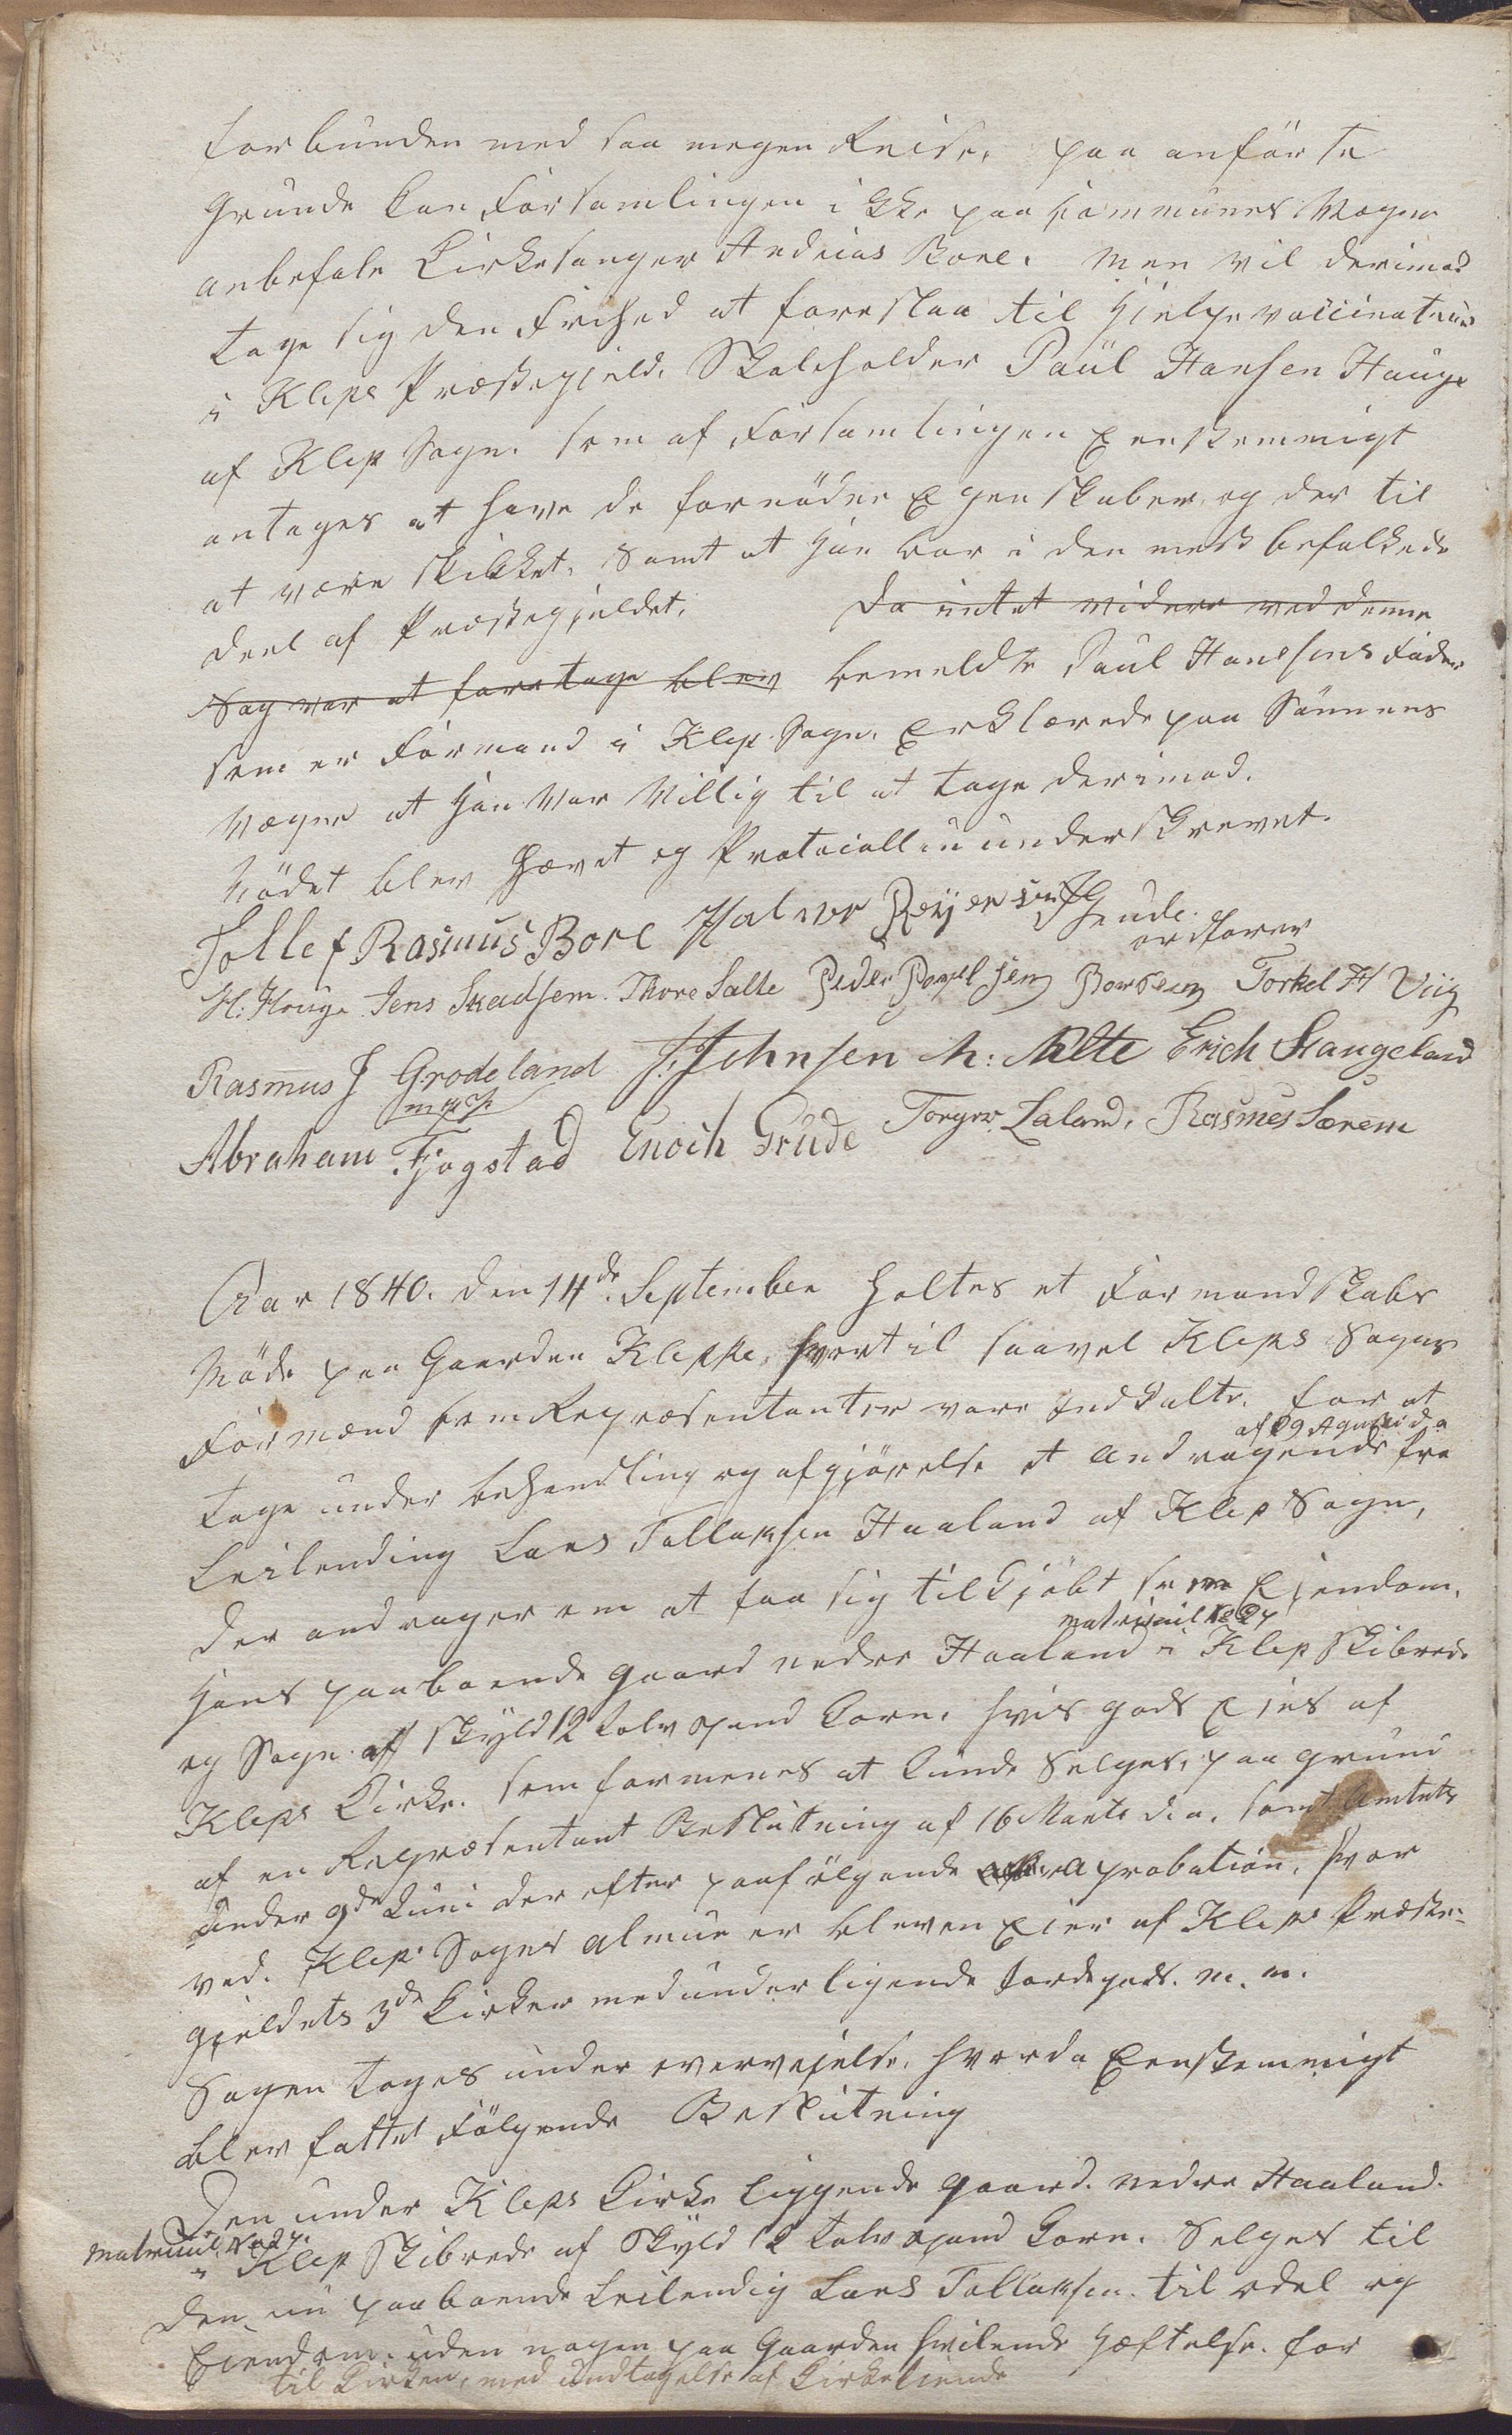 forbunden med saa megen Reise, paa anförte
Grunde kan Forsamlingen ikke paa Communes Vægne
anbefale Kirkesanger Andrias Bore. men vil derimod
tage sig den Frihed at foreslaa til Hjelpevaccinateur
i Kleps Præstegjeld, Skoleholder Paul Hansen Hauge
af Klep Sogn. som af Forsamlingen Eenstemmigt
antages at have de fornödne Egenskaber og der til
at være skikket, samt at Han boer i den mest befolkede
deel af Præstegjeldet. Da intet videre ved denne
Sag var at foretage blev bemeldte Paul Hansens Fader
som er Formand i Klep Sogn. Erklærede paa Sönnens
Vægne at Han var Villig til at tage derimod.
Mödet blev Hævet og Protocollen underskrevet.
Tollef Rasmus Bore Halvor Reijersen Grude
ordförer
H: Houge Jens Skadsem. Thore Salte Peder Povelsen Borsem Torkel H Viig
Rasmus J Grodeland J: Johnsen N: Nelte Erich Stangeland
m p P
Abraham Fjogstad Enoch Grude Torger Laland, Rasmus Særem
Aar 1840. den 14de September Holtes et Formandskabs
Möde paa Gaarden Kleppe, hvortil saavel Kleps Sogns
Formænd som Repræsentanter vare Indkalte. for at
af 29 August d. a
tage under behandling og afgjörelse et andragende fra
Leilending Lars Tollaksen Haaland af Klep Sogn,
der andrager om at faa sig tilkjöbt som Ejendom,
matricul No 27
Hans paaboende gaard nedre Haaland i Klep Skibrede
og Sogn af Skyld 12 tolv spand Korn. hvis gods Ejes af
Kleps Kirke. som formenes at kunde Selges, paa grund
af en Repræsentant Beslutning af 16 Marts d. a. samt Amtets
under 9de Juni der efter paafölgende aprobation, hvor
ved. Klep Sogns almue er bleven Eier af Kleps Præste-
gjeldets 3de Kirker med underligende Jordegods. m. m.
Sagen toges under overvejelse, hvorda Eenstemmigt
blev fattet Fölgende Beslutning
Den under Kleps Kirke liggende gaard. nedre Haaland.
matricul No 27.
i Klep Skibrede af Skyld 12 tolv spand Korn. Selges til
den nu paaboende Leilendig Lars Tollaksen. til odel og
Eiendom. uden nogen paa Gaarden hvilende Hæftelse. for
til Kirken, med undtagelse af Kirketiende